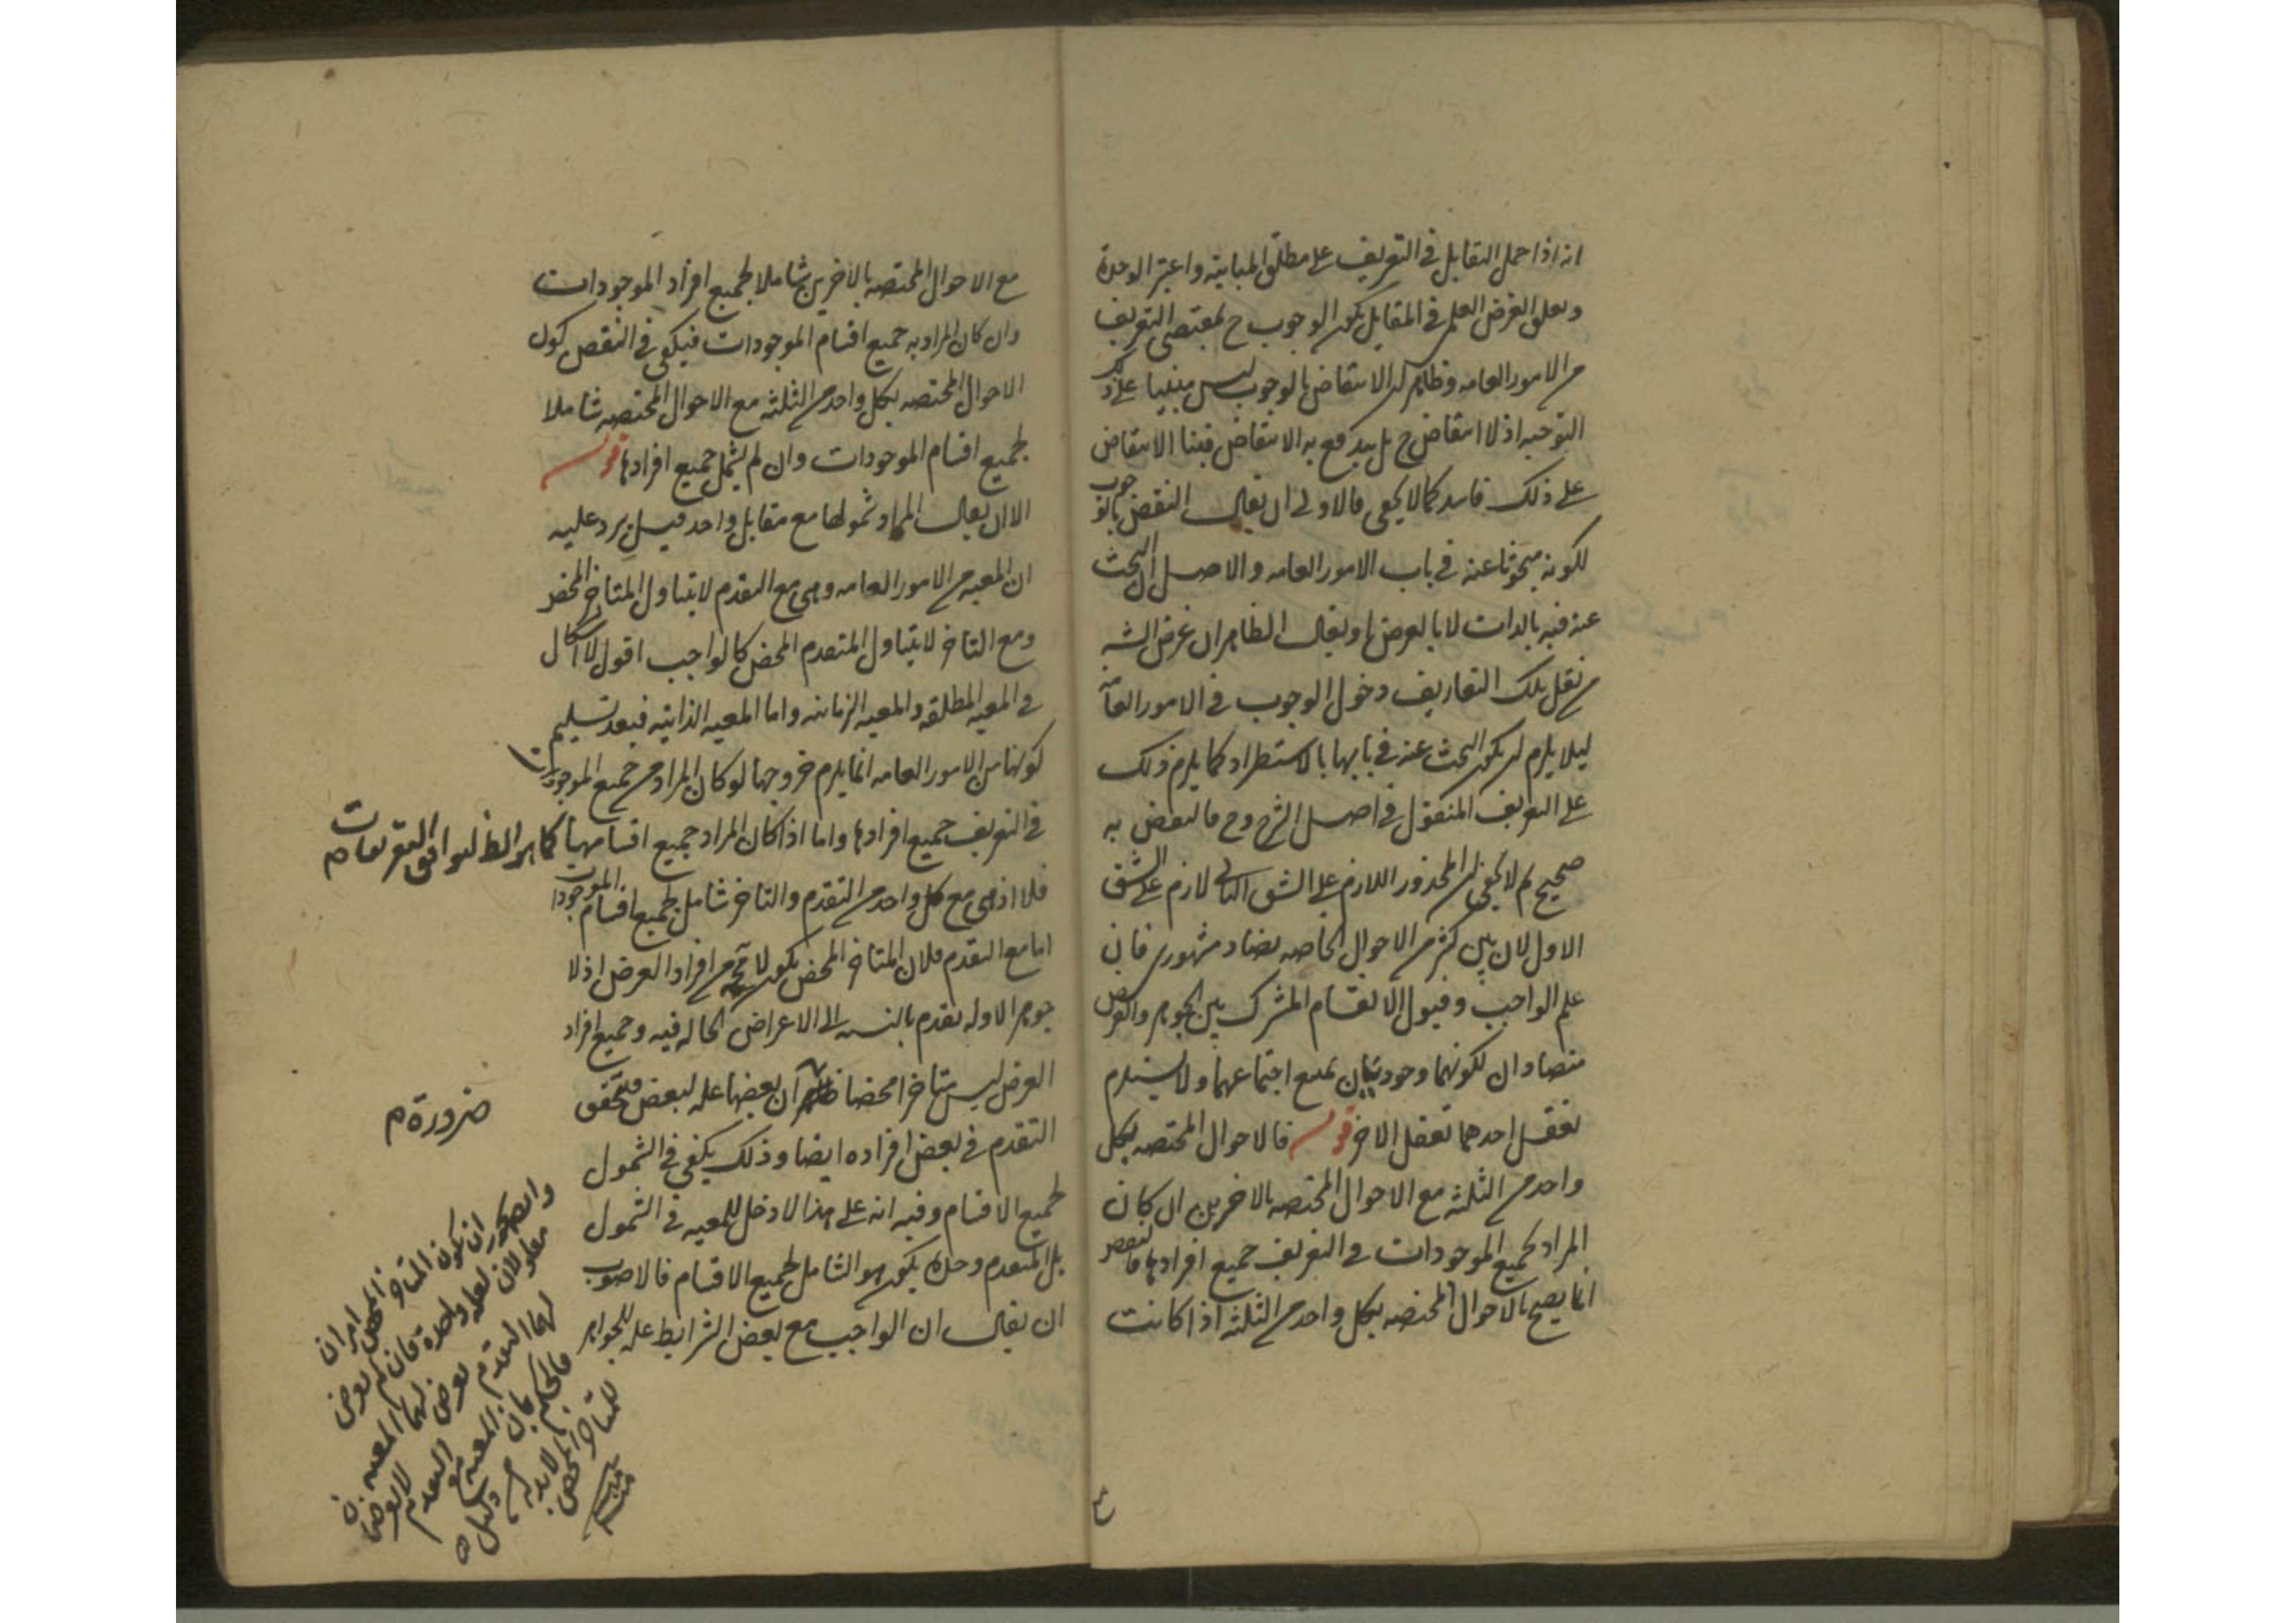 انه اذا حمل التقابل فى التعريف على مطلق المباينة واعتبر الوحدة
وتعلق الغرض العلمى فى المقابل يكون الوجوب ح بمقتضى التعريف
من الامور العامه وظاهر ان الانتقاض بالوجوب ليس مبنيا على ذلك
التوجيه اذ لا انتقاض ح بل يندفع به الانتقاض فبنا الانتقاض
على ذلك فاسد كما لا يخفى فالاولى ان يقال النقض بالوجوب
لكونه مبحوثا عنه فى باب الامور العامه والاصل ان البحث
عنه فيه بالذات لا بالعرض او يقال الظاهر ان غرض الشه
من نقل تلك التعاريف دخول الوجوب فى الامور العامة
ليلا يلزم ان يكون البحث عنه فى بابها بالاستطراد كما يلزم ذلك
على التعريف المنقول فى اصل الشرح وح فالنقض به
صحيح ثم لا يخفى ان المحذور اللازم على الشق الثانى لازم على الشق
الاول لان بين كثير من الاحوال الخاصه تضاد مشهورى فان
علم الواجب وقبول الانقسام المشترك بين الجوهر والعرض
متضادان لكونهما وجوديتان يمنع اجتماعهما ولا يستلزم
تعقل احدهما تعقل الاخر قوله فالاحوال المختصه بكل
واحد من الثلثه مع الاحوال المختصه بالاخرين ان كان
المراد بجميع الموجودات فى التعريف جميع افرادها فالنقض
انما يصح بالاحوال المختصه بكل واحد من الثلثه اذا كانت
مع الاحوال المختصه بالاخرين شاملا لجميع افراد الموجودات
وان كان المراد به جميع اقسام الموجودات فيكفى فى النقض كون
الاحوال المختصه بكل واحد من الثلثه مع الاحوال المختصه شاملا
لجميع اقسام الموجودات وان لم يشمل جميع افرادها قوله
الا ان يقال المراد شمولها مع مقابل واحد قيل يرد عليه
ان المعيه من الامور العامه وهى مع التقدم لا يتناول المتاخر المحض
ومع التاخر لا يتناول المتقدم المحض كالواجب اقول لا اشكال
فى المعيه المطلقه والمعيه الزمانيه واما المعيه الذاتيه فبعد تسليم
كونها من الامور العامه انما يلزم خروجها لو كان المراد من جميع الموجودات
فى التعريف جميع افرادها واما اذا كان المراد جميع اقسامها كما هو الظ ليوافق التعريفات م
فلا اذ هى مع كل واحد من التقدم والتاخر شامل لجميع اقسام الموجودات
اما مع التقدم فلان المتاخر المحض يكون لا محه من افراد العرض اذ لا
جوهر الا وله تقدم بالنسبه الى الاعراض الحاله فيه وجميع افراد
العرض ليس متاخرا محضا ان بعضها عله لبعض فتحقق
ضرورة م
التقدم فى بعض افراده ايضا وذلك يكفى فى الشمول
لجميع الاقسام وفيه انه على هذا لا دخل للمعيه فى الشمول
بل المتقدم وحده يكون هو الشامل لجميع الاقسام فالاصوب
ان يقال ان الواجب مع بعض الشرايط عله للجواهر
وايضا يجوز ان يكون المتاخر المحض امران
معلولان لعله واحدة فان لم يعرض
لهما التقدم يعرض لهما المعيه
فالحكم بان المعيه مع التقدم لا يعرضان
للمتاخر المحض لابد له من دليل
منه